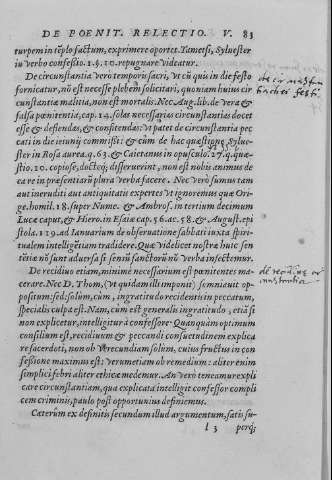 DE POENIT. RELECTIO. V. 83
turpem in tēplo factum, exprimere oportet. Tametsi, Syluester
in verbo confessio. 1. §. 10. repugnare videatur.
De circunstantia vero temporis sacri, vt cū quis in die festo
fornicatur, nō est necesse plebem solicitari, quoniam huius cir
cunstantiæ malitia, non est mortalis. Nec Aug. lib. de vera &
falsa pœnitentia, cap. 14. solas necessarias circunstantias docet
esse & deflendas, & confitendas: vt patet de circunstantia pec
cati in die ieiunij commissi: & cum de hac quæstione Sylue-
ster in Rosa aurea. q. 63. & Caietanus in opusculo. 27. q. quæ-
stio. 20. copiose, doctéq; disseruerint, non est nobis animus de
ea re in præsentiarū plura verba facere. Nec verò sumus tam
aut ineruditi aut antiquitatis expertes vt ignoremus quæ Ori-
ge. homil. 18. super Nume. & Ambros. in tertium decimum
Lucæ caput, & Hiero. in Esaiæ cap. 56. ac. 58. & August. epi
stola. 119. ad Ianuarium de obseruatione sabbati iuxta spiri-
tualem intelligētiam tradidere. Quæ videlicet nostræ huic sen
tētiæ nō sunt aduersa si sensū sanctorū nō verba insectemur.
De recidiuo etiam, minime necessarium est pœnitentes ma
cerare. Nec D. Thom, (vt quidam illi imponit) somniauit op-
positum: sed: solum, cum, ingratitudo recidentis in peccatum,
specialis culpa est. Nam, cum est generalis ingratitudo, etiā si
non explicetur, intelligitur à confessore. Quanquam optimum
consilium est, recidiuum & peccandi consuetudinem explica
re sacerdoti, non ob verecundiam solum, cuius fructus in con
fessione maximus est: verumetiam ob remedium: aliter enim
simplici febri aliter ethicæ medemur. An verò teneamur expli
care circunstantiam, qua explicata intelligit confessor compli
cem criminis, paulo post opportunius definiemus.
Cæterum ex definitis secundum illud argumentum, satis su-
l 3 perq;